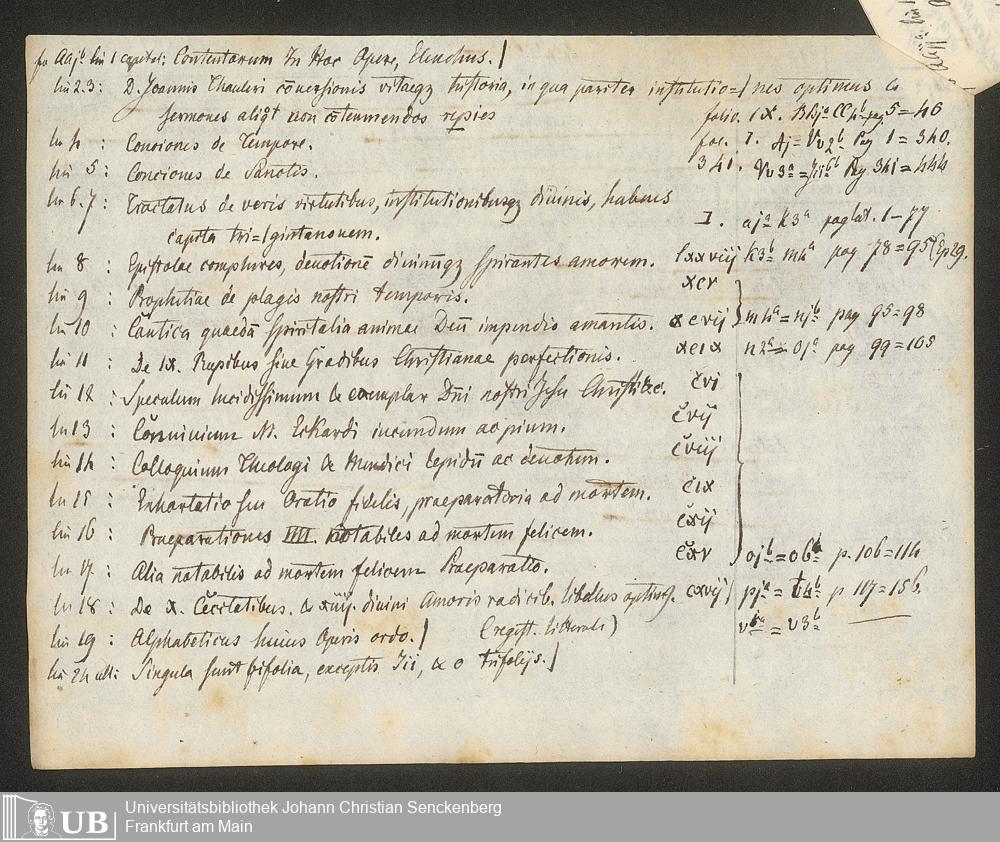 fo AAjb lin 1 capitel: Contentorum In Hoc Opere, Elenchus./
lin 2.3: D. Joannis Thauleri cōuersionis vitaeqz historia, in qua pariter institutio=/nes optimus
sermones aliqt non cōtemnendos repies folio. IX. 5=40
lin 4 : Conciones de Tempore. foe. I. Aj=Vv2b Pag 1=340.
lin 5 : Conciones de Sanctis. 341. Vv3a=Iii6b Pag 341=444
lin 6.7: Tractatus de veris virtutibus, institutionibusqz diuinis, habens
capita tri=/gintanouem. I. aja k3a pag lat. 1–77
lin 8 : Epistolae complures, deuotionē diuinūqz spirantes amorem. lxxviij k3b m4a pag 78=95 (Ep 29.
lin 9 : Prophetiae de plagis nostri temporis. xcv
lin 10 : Cātica quaedā spiritalia animae Deū impendio amantis. xcvij m4a=njb pag 95=98
lin 11 : De IX. Rupibus siue Gradibus Christianae perfectionis. xcix n2a=oja pag 99=105
lin 12 : Speculum lucidissimum & exemplar Dni nostri Jesu Christi &c. cvj
lin 13 : Cōuiuium M. Eckardi iucundum ac pium. cvij
lin 14 : Colloquium Theologi & Mendici lepidū ac deuotum. cviij
lin 15 : Exhortatio seu Oratio fidelis, praeparatoria ad mortem. cix
lin 16 : Praeparationes IIII. notabiles ad mortem felicem. cxij
lin 17 : Alia notabilis ad mortem felicem Praeparatio. cxv ojb=o6b p. 106=116
lin 18 : De X. Cęcitatibus. & xiiij. diuini Amoris radicib. libellus optim9. cxvij pja = t4b p 117=156.
lin 19 : Alphabeticus huius Operis ordo./ (regist. litterale) = v3b
lin 24 ult: Singula sunt bifolia, exceptis Iii, & o trifolijs./
Universitätsbibliothek Johann Christian Senckenberg
UB Frankfurt am Main